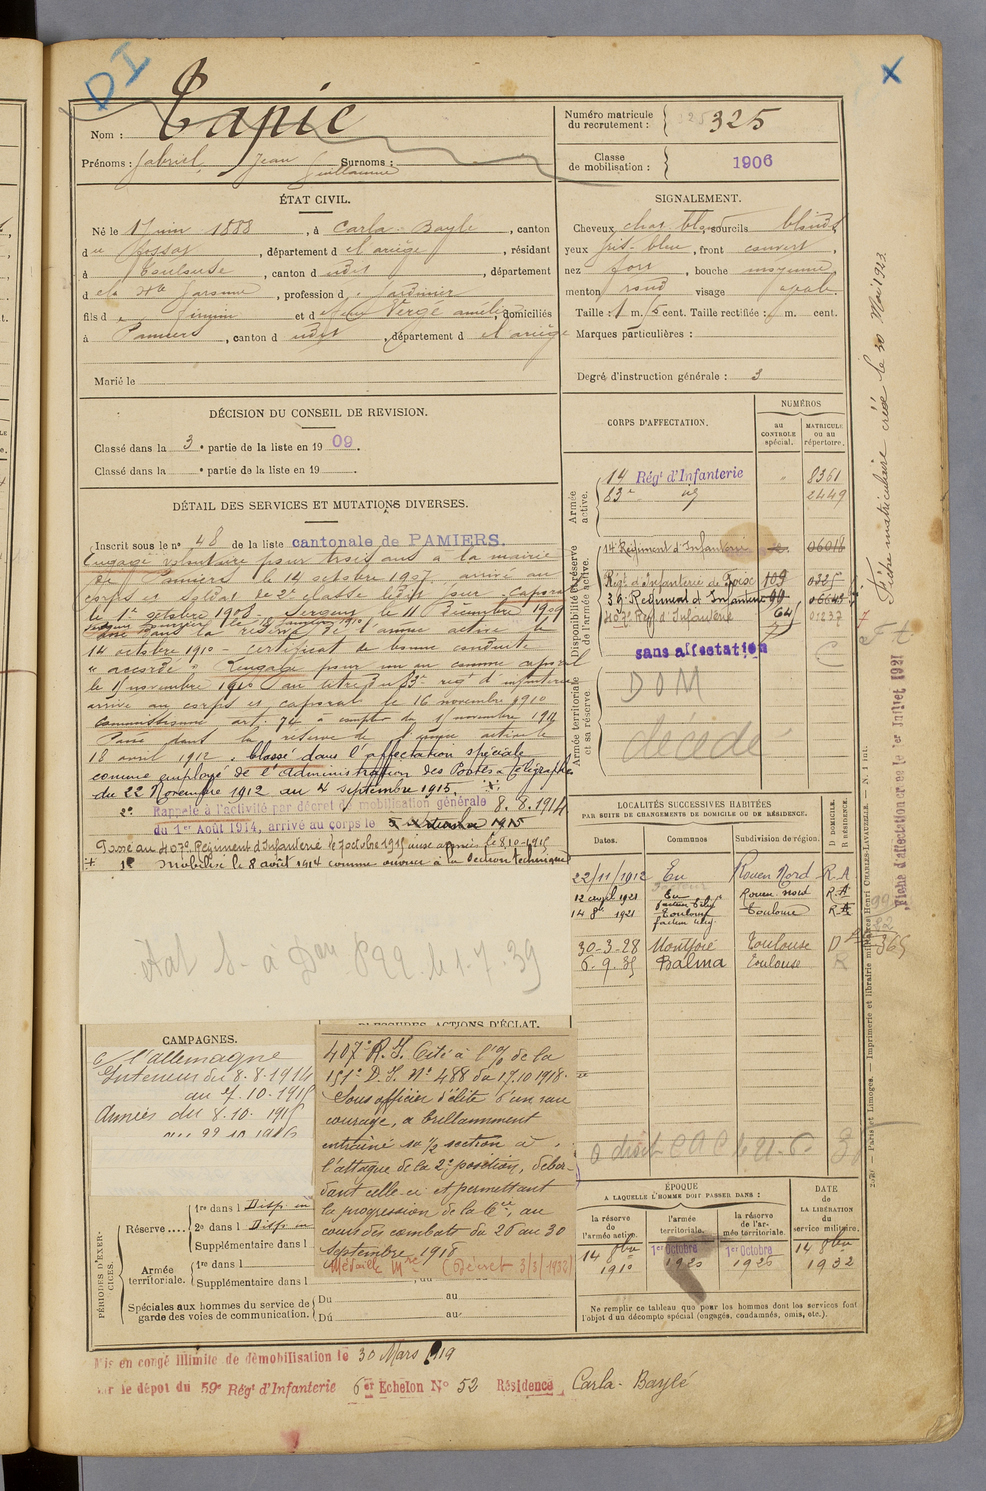 DI
X
Nom : Tapie
Prénoms : Gabriel Jean Guillaume Surnoms :
Numéro matricule du recrutement : 325
Classe de mobilisation : 1906
ÉTAT CIVIL.
Né le 1 juin 1888, à Carla-Bayle, canton
du Fossat, département de l'ariège, résidant
à Toulouse, canton dudit, département
de la Hte Garonne, profession de Jardinier
fils de Firmin et de feue Vergé amélie domiciliés
à Pamiers, canton dudit, département de l'ariège
Marié le
SIGNALEMENT.
Cheveux chat. bl. sourcils blonds
yeux gris-bleu, front couvert,
nez fort, bouche moyenne,
menton rond visage ovale.
Taille : 1 m. cent. Taille rectifiée : m. cent.
Marques particulières :
Degré d'instruction générale : 3
DÉCISION DU CONSEIL DE REVISION.
Classé dans la 3e partie de la liste en 1909.
Classé dans la e partie de la liste en 19 .
DÉTAIL DES SERVICES ET MUTATIONS DIVERSES.
Inscrit sous le no 48 de la liste cantonale de PAMIERS.
Engagé volontaire pour trois ans à la mairie
de Pamiers le 14 octobre 1907, arrivé au
corps et soldat de 2e classe ledit jour. Caporal
le 1er octobre 1908. Sergent le 11 Décembre 1909
Passé dans la réserve de l'armée active le
14 octobre 1910 - certificat de bonne conduite
"accordé" Rengagé pour un an comme caporal
le 1 novembre 1910 au titre du 83e regt d'infanterie
arrivé au corps et caporal le 16 novembre 1910
Commissionné art. 74 à compter du 1 novembre 1911
Passé dans la réserve de l'armée active le
18 avril 1912. Classé dans l'affectation spéciale
comme employé de l'Administration des Postes & Télégraphes
du 22 Novembre 1912 au 4 septembre 1915.
2o Rappelé à l'activité par décret de mobilisation générale 8.8.1914
du 1er Août 1914, arrivé au corps le
Passé au 407e Régiment d'Infanterie le 7 octobre 1915
1o Mobilisé le 8 août 1914 comme ouvrier à la section technique
CORPS D'AFFECTATION.
NUMÉROS
au CONTROLE spécial.
MATRICULE ou au répertoire.
Armée active.
14 Régt d'Infanterie 8361
83e id 2449
Disponibilité et réserve de l'armée active.
14e Régiment d'Infanterie 06018
Régt d'Infanterie de Foix 109 0325
39 Régiment d'Infanterie 99 06643
407e Regt d'Infanterie 64 01237
sans affectation
Armée territoriale et sa réserve
DOM
décédé
LOCALITÉS SUCCESSIVES HABITÉES
PAR SUITE DE CHANGEMENTS DE DOMICILE OU DE RÉSIDENCE.
Dates. Communes Subdivision de région. D DOMICILE. R RÉSIDENCE.
22/11/1912 Eu Rouen Nord R.A
12 avril 1921 Eu Rouen Nord R.A
14 8bre 1921 Toulouse Toulouse R.A
30-3-28 Montjoie Toulouse D
6.9.35 Balma Toulouse R
365
CAMPAGNES.
C/ l'allemagne
Intérieur du 8.8.1914
au 7.10.1915
Armées du 8.10.1915
BLESSURES, ACTIONS D'ÉCLAT.
407e R.I. Cité à l'o/ de la
151e D.I. No 488 du 17.10.1918.
Sous officier d'élite d'un rare
courage, a brillamment
entraîné sa ½ section à
l'attaque de la 2e position, débor-
dant celle-ci et permettant
la progression de la Cie, au
cours des combats du 26 au 30
Septembre 1918
Médaille Mre (Décret 3/3/1932)
PÉRIODES D'EXERCICES.
Réserve....
1re dans l Disp. in
2e dans l Disp. in
Supplémentaire dans l
Armée territoriale.
1re dans l
Supplémentaire dans l
Spéciales aux hommes du service de garde des voies de communication.
Du au
Du au
ÉPOQUE
A LAQUELLE L'HOMME DOIT PASSER DANS :
la réserve de l'armée active.
l'armée territoriale.
la réserve de l'armée territoriale.
DATE de LA LIBÉRATION du service militaire.
14 8bre 1910
1er Octobre 1920
1er Octobre 1926
14 8bre 1932
Ne remplir ce tableau que pour les hommes dont les services font
l'objet d'un décompte spécial (engagés, condamnés, omis, etc.).
Mis en congé illimité de démobilisation le 30 Mars 1919
sur le dépôt du 59e Régt d'Infanterie 6er Echelon No 52 Résidence Carla-Baylé
Fiche matriculaire créée le 20 Mai 1923
Fiche d'affectation créée le 1er Juillet 1921
Paris et Limoges. — Imprimerie et librairie militaires Henri CHARLES-LAVAUZELLE.